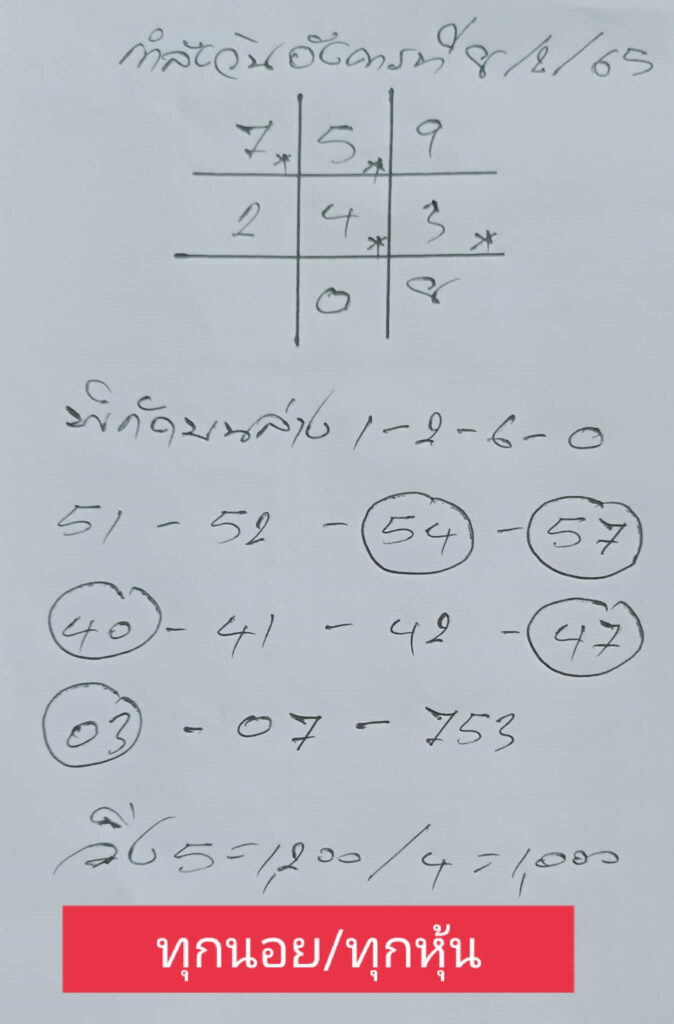 กำลังวันอังคารที่ 8/2/65
7* 5* 9
2 4* 3*
0 8
พิกัดบนล่าง 1-2-6-0
51 - 52 - 54 - 57
40 - 41 - 42 - 47
03 - 07 - 753
วิ่ง 5=1,200/4=1,000
ทุกนอย/ทุกหุ้น